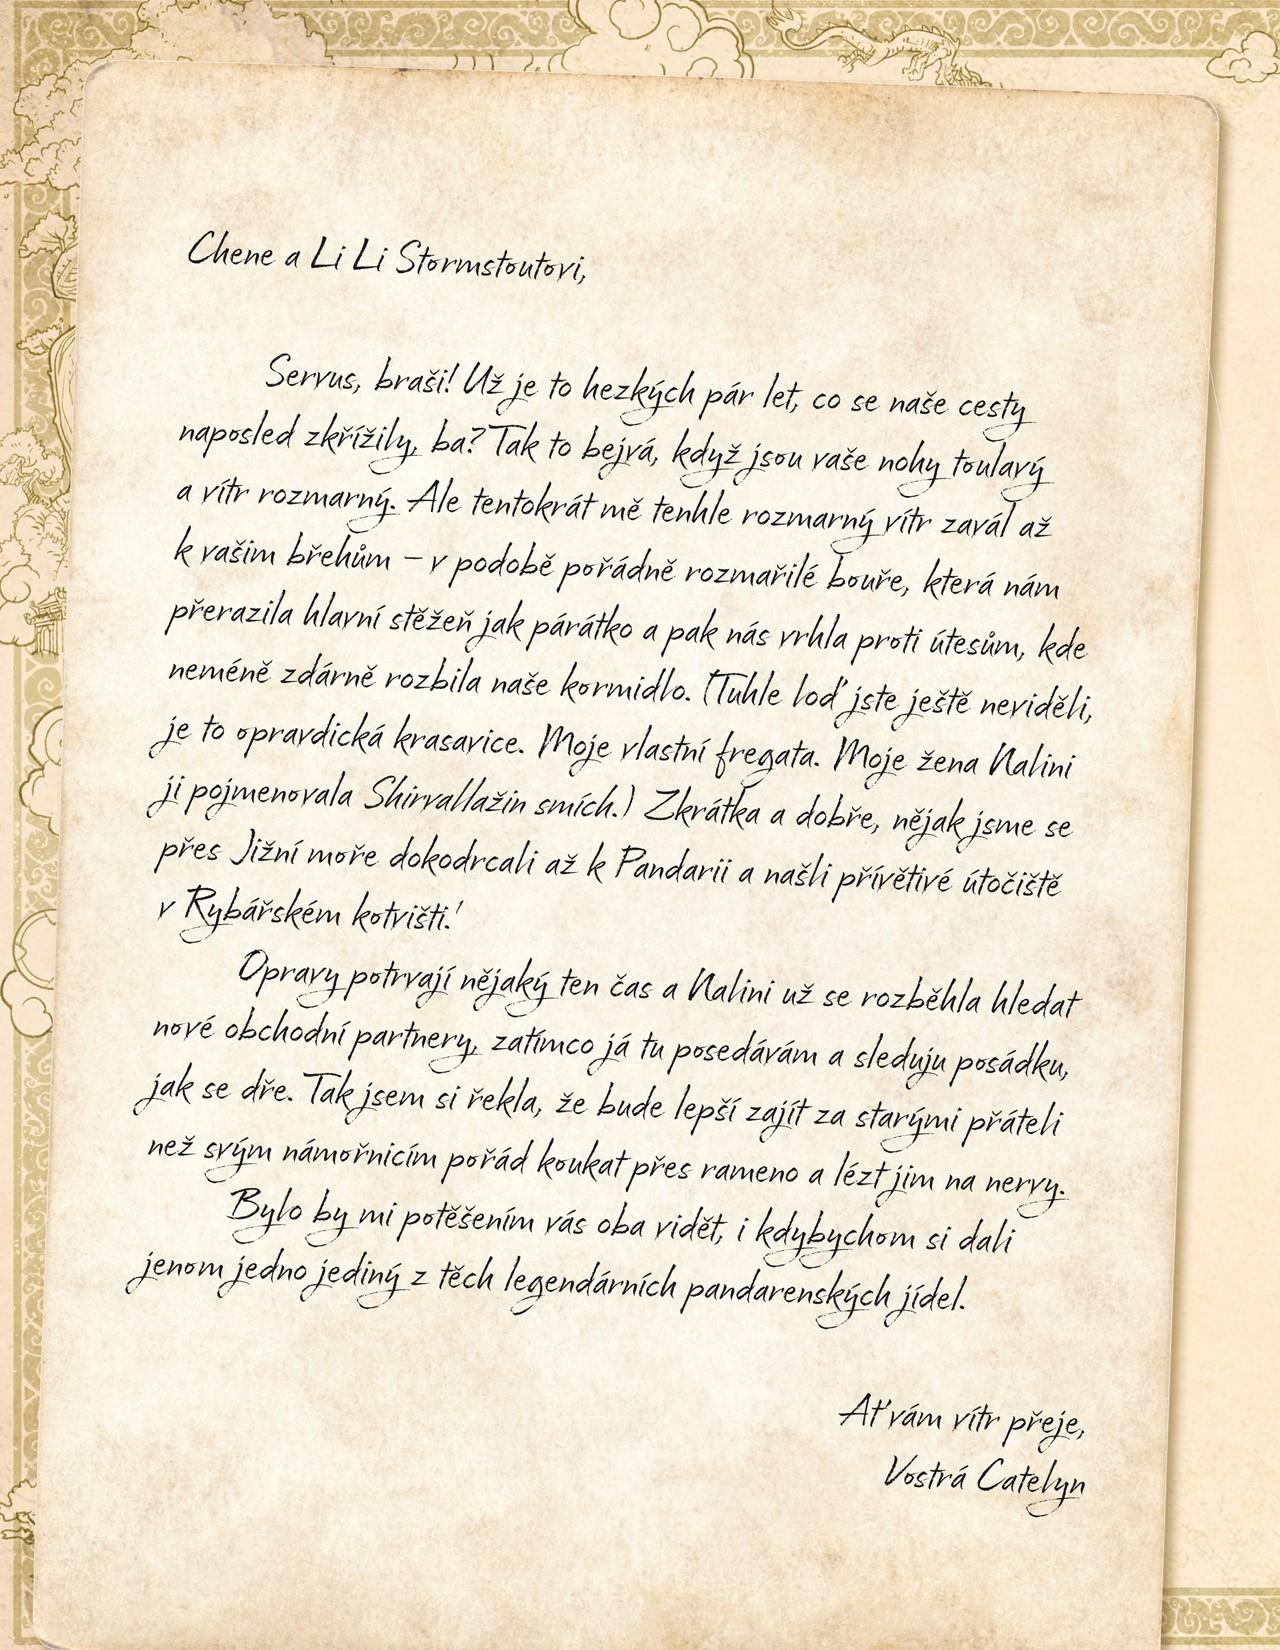 Chene a Li Li Stormstoutovi,
Servus, braši! Už je to hezkých pár let, co se naše cesty
naposled zkřížily, ba? Tak to bejvá, když jsou vaše nohy toulavý
a vítr rozmarný. Ale tentokrát mě tenhle rozmarný vítr zavál až
k vašim břehům – v podobě pořádně rozmařilé bouře, která nám
přerazila hlavní stěžeň jak párátko a pak nás vrhla proti útesům, kde
neméně zdárně rozbila naše kormidlo. (Tuhle loď jste ještě neviděli,
je to opravdická krasavice. Moje vlastní fregata. Moje žena Nalini
ji pojmenovala Shirvallažin smích.) Zkrátka a dobře, nějak jsme se
přes Jižní moře dokodrcali až k Pandarii a našli přívětivé útočiště
v Rybářském kotvišti!
Opravy potrvají nějaký ten čas a Nalini už se rozběhla hledat
nové obchodní partnery, zatímco já tu posedávám a sleduju posádku,
jak se dře. Tak jsem si řekla, že bude lepší zajít za starými přáteli
než svým námořnicím pořád koukat přes rameno a lézt jim na nervy.
Bylo by mi potěšením vás oba vidět, i kdybychom si dali
jenom jedno jediný z těch legendárních pandarenských jídel.
Ať vám vítr přeje,
Vostrá Catelyn